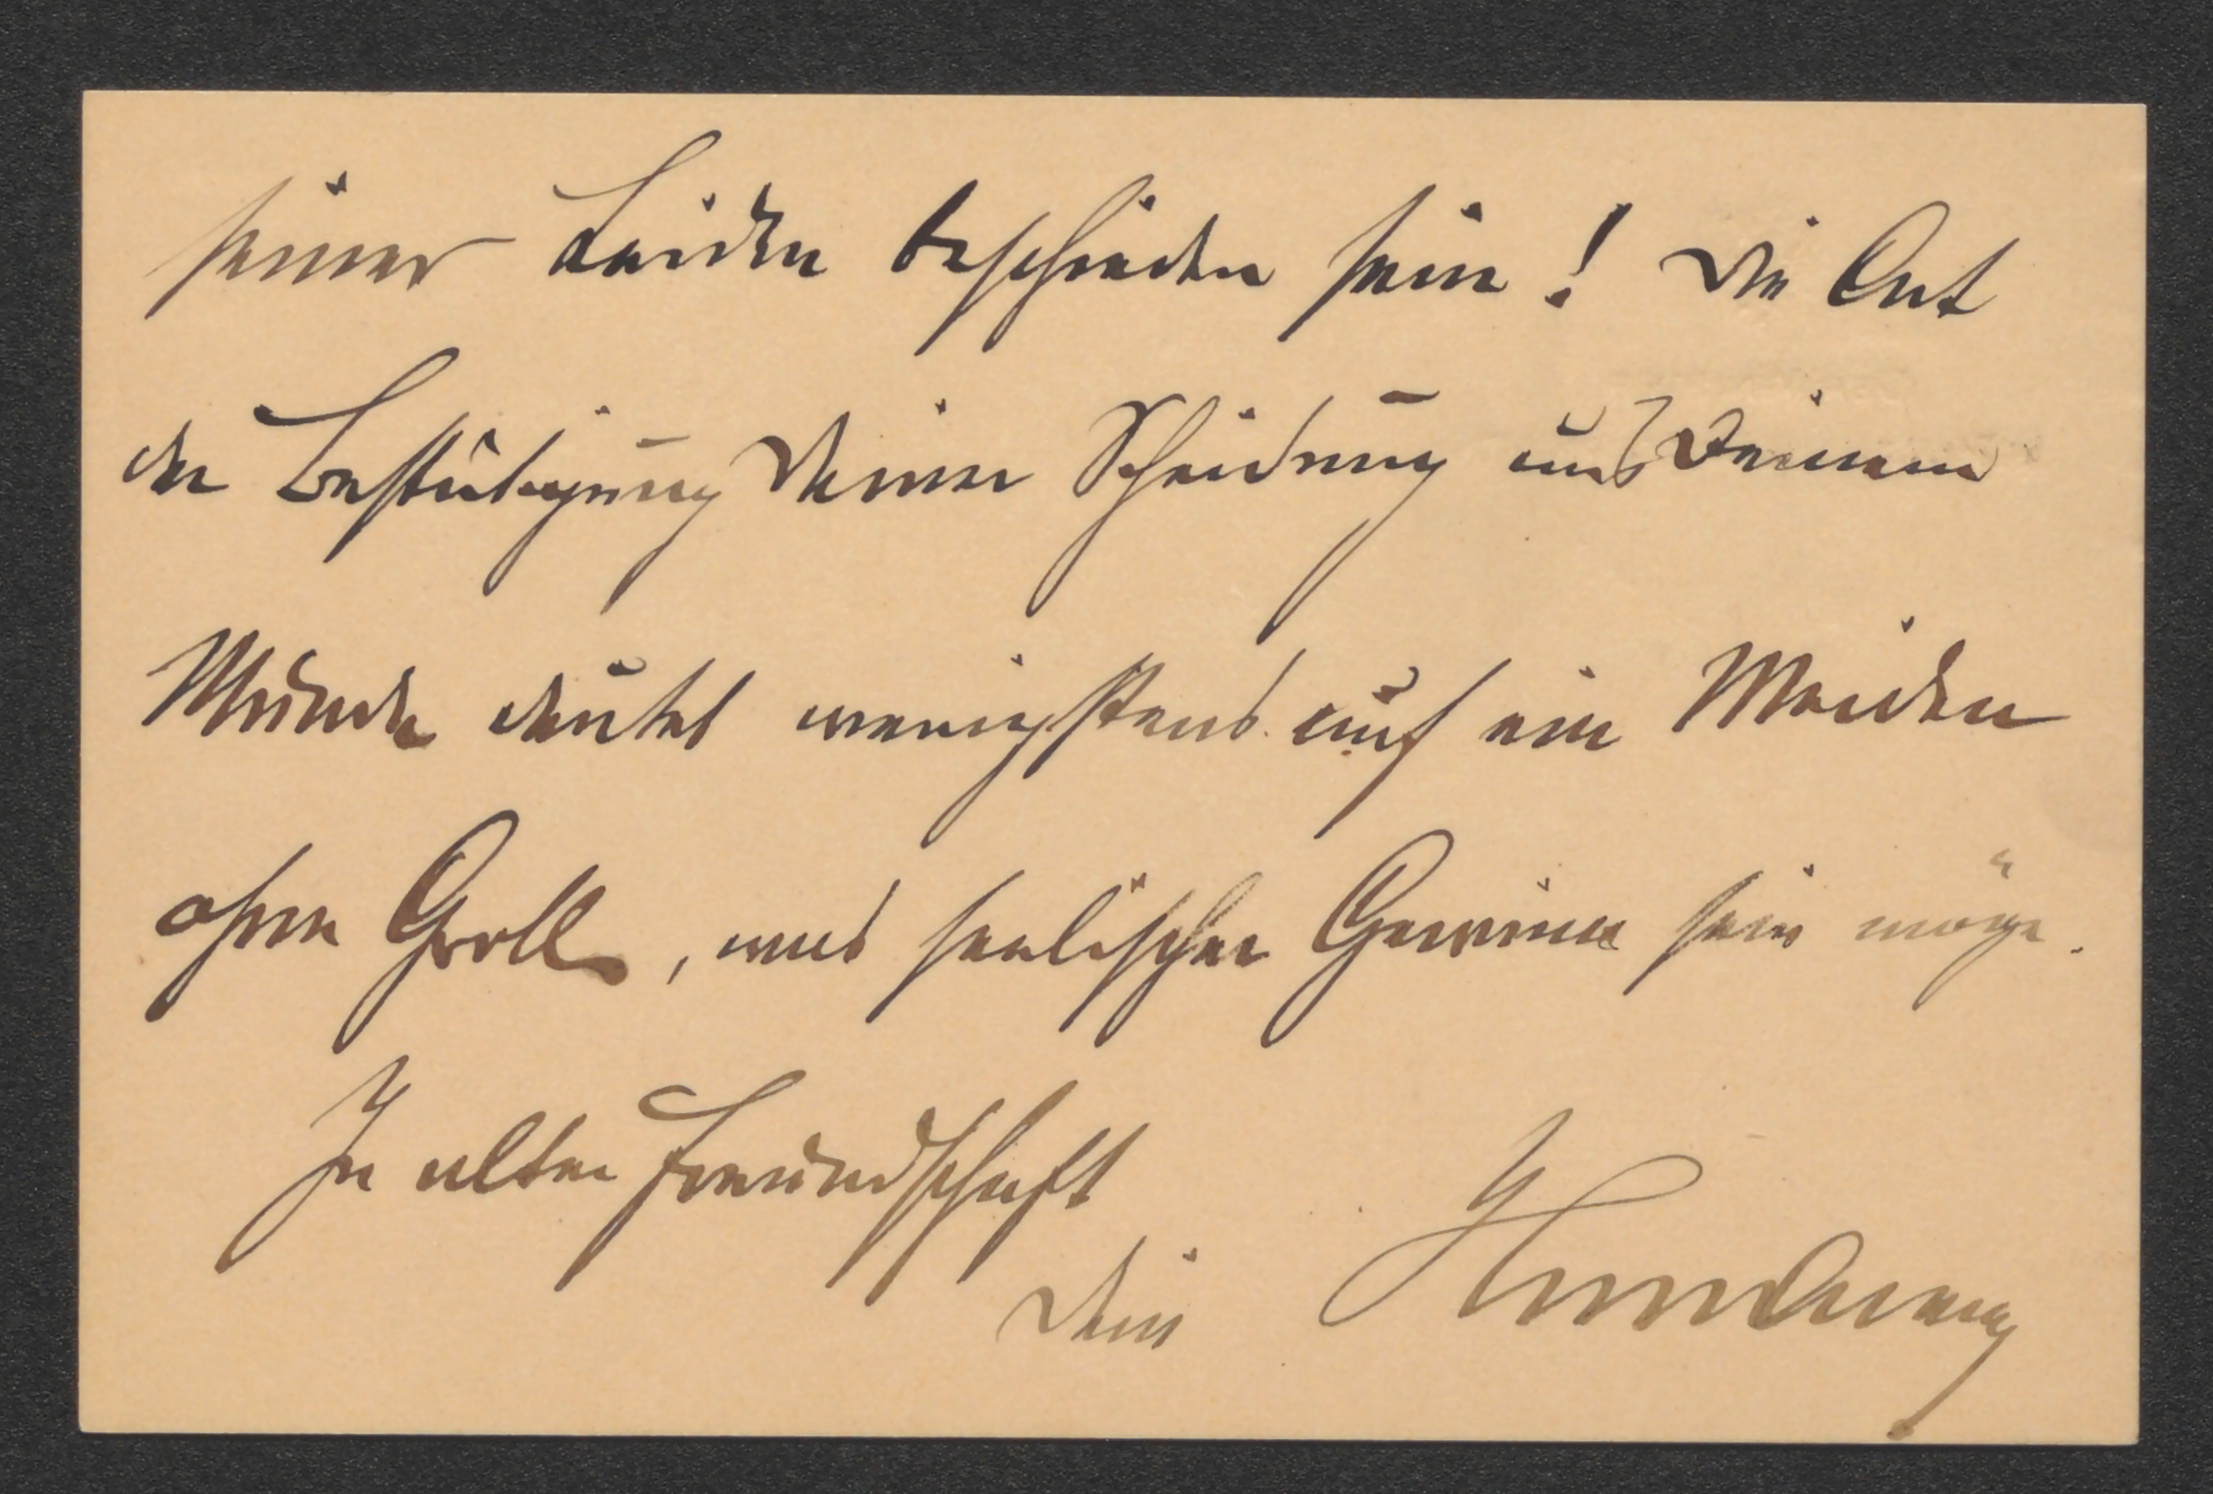 seiner Leiden beschieden sein! Die Art
der Bestätigung Deiner Scheidung aus Deinem
Munde deutet wenigstens auf ein Meiden
ohne Groll, was seelischer Gewinn sein möge.
In alter Freundschaft
Dein